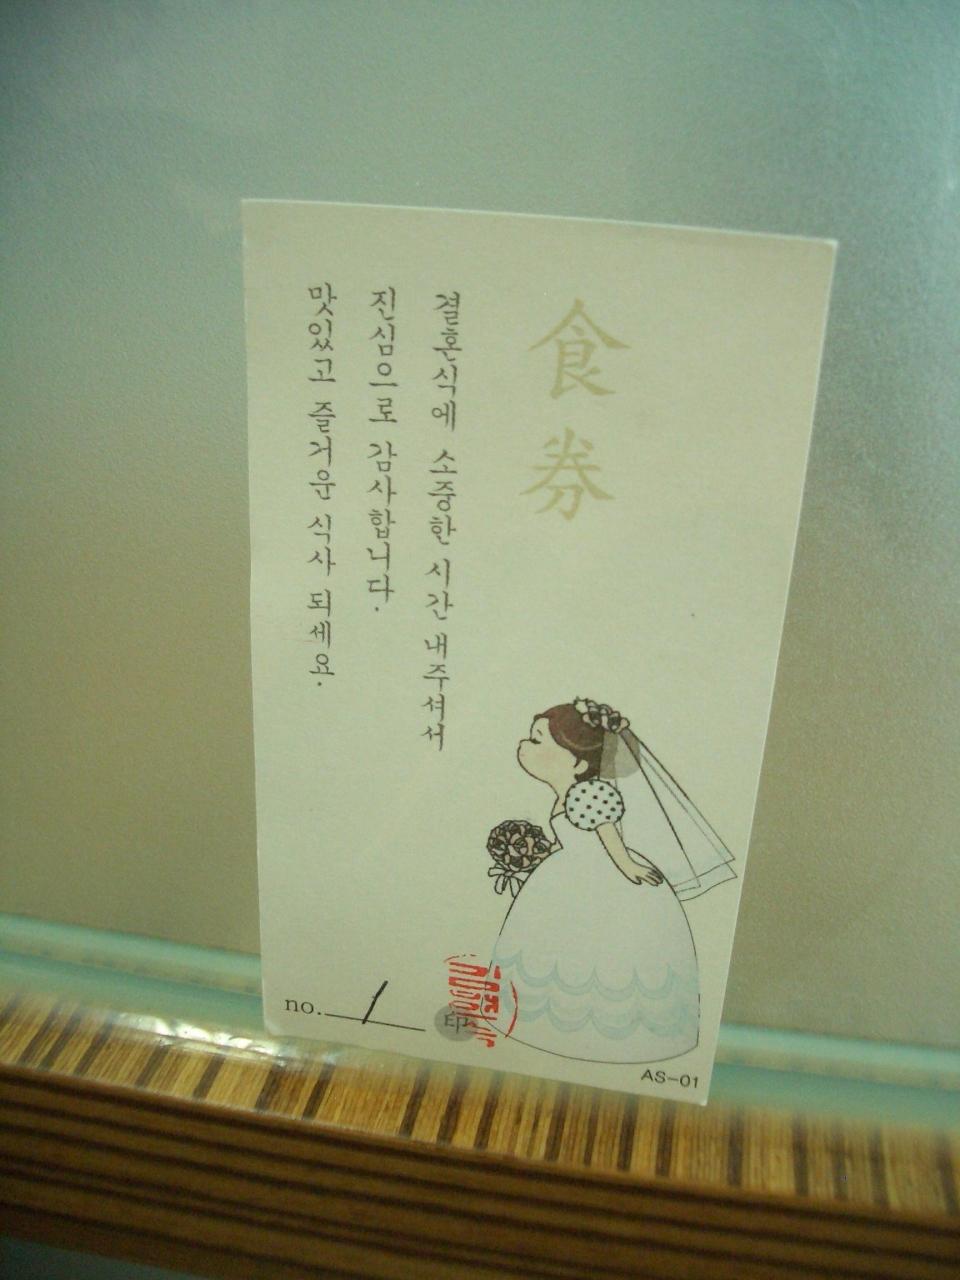 食券
결혼식에 소중한 시간 내주셔서
진심으로 감사합니다.
맛있고 즐거운 식사 되세요.
no. 1
印
AS-01